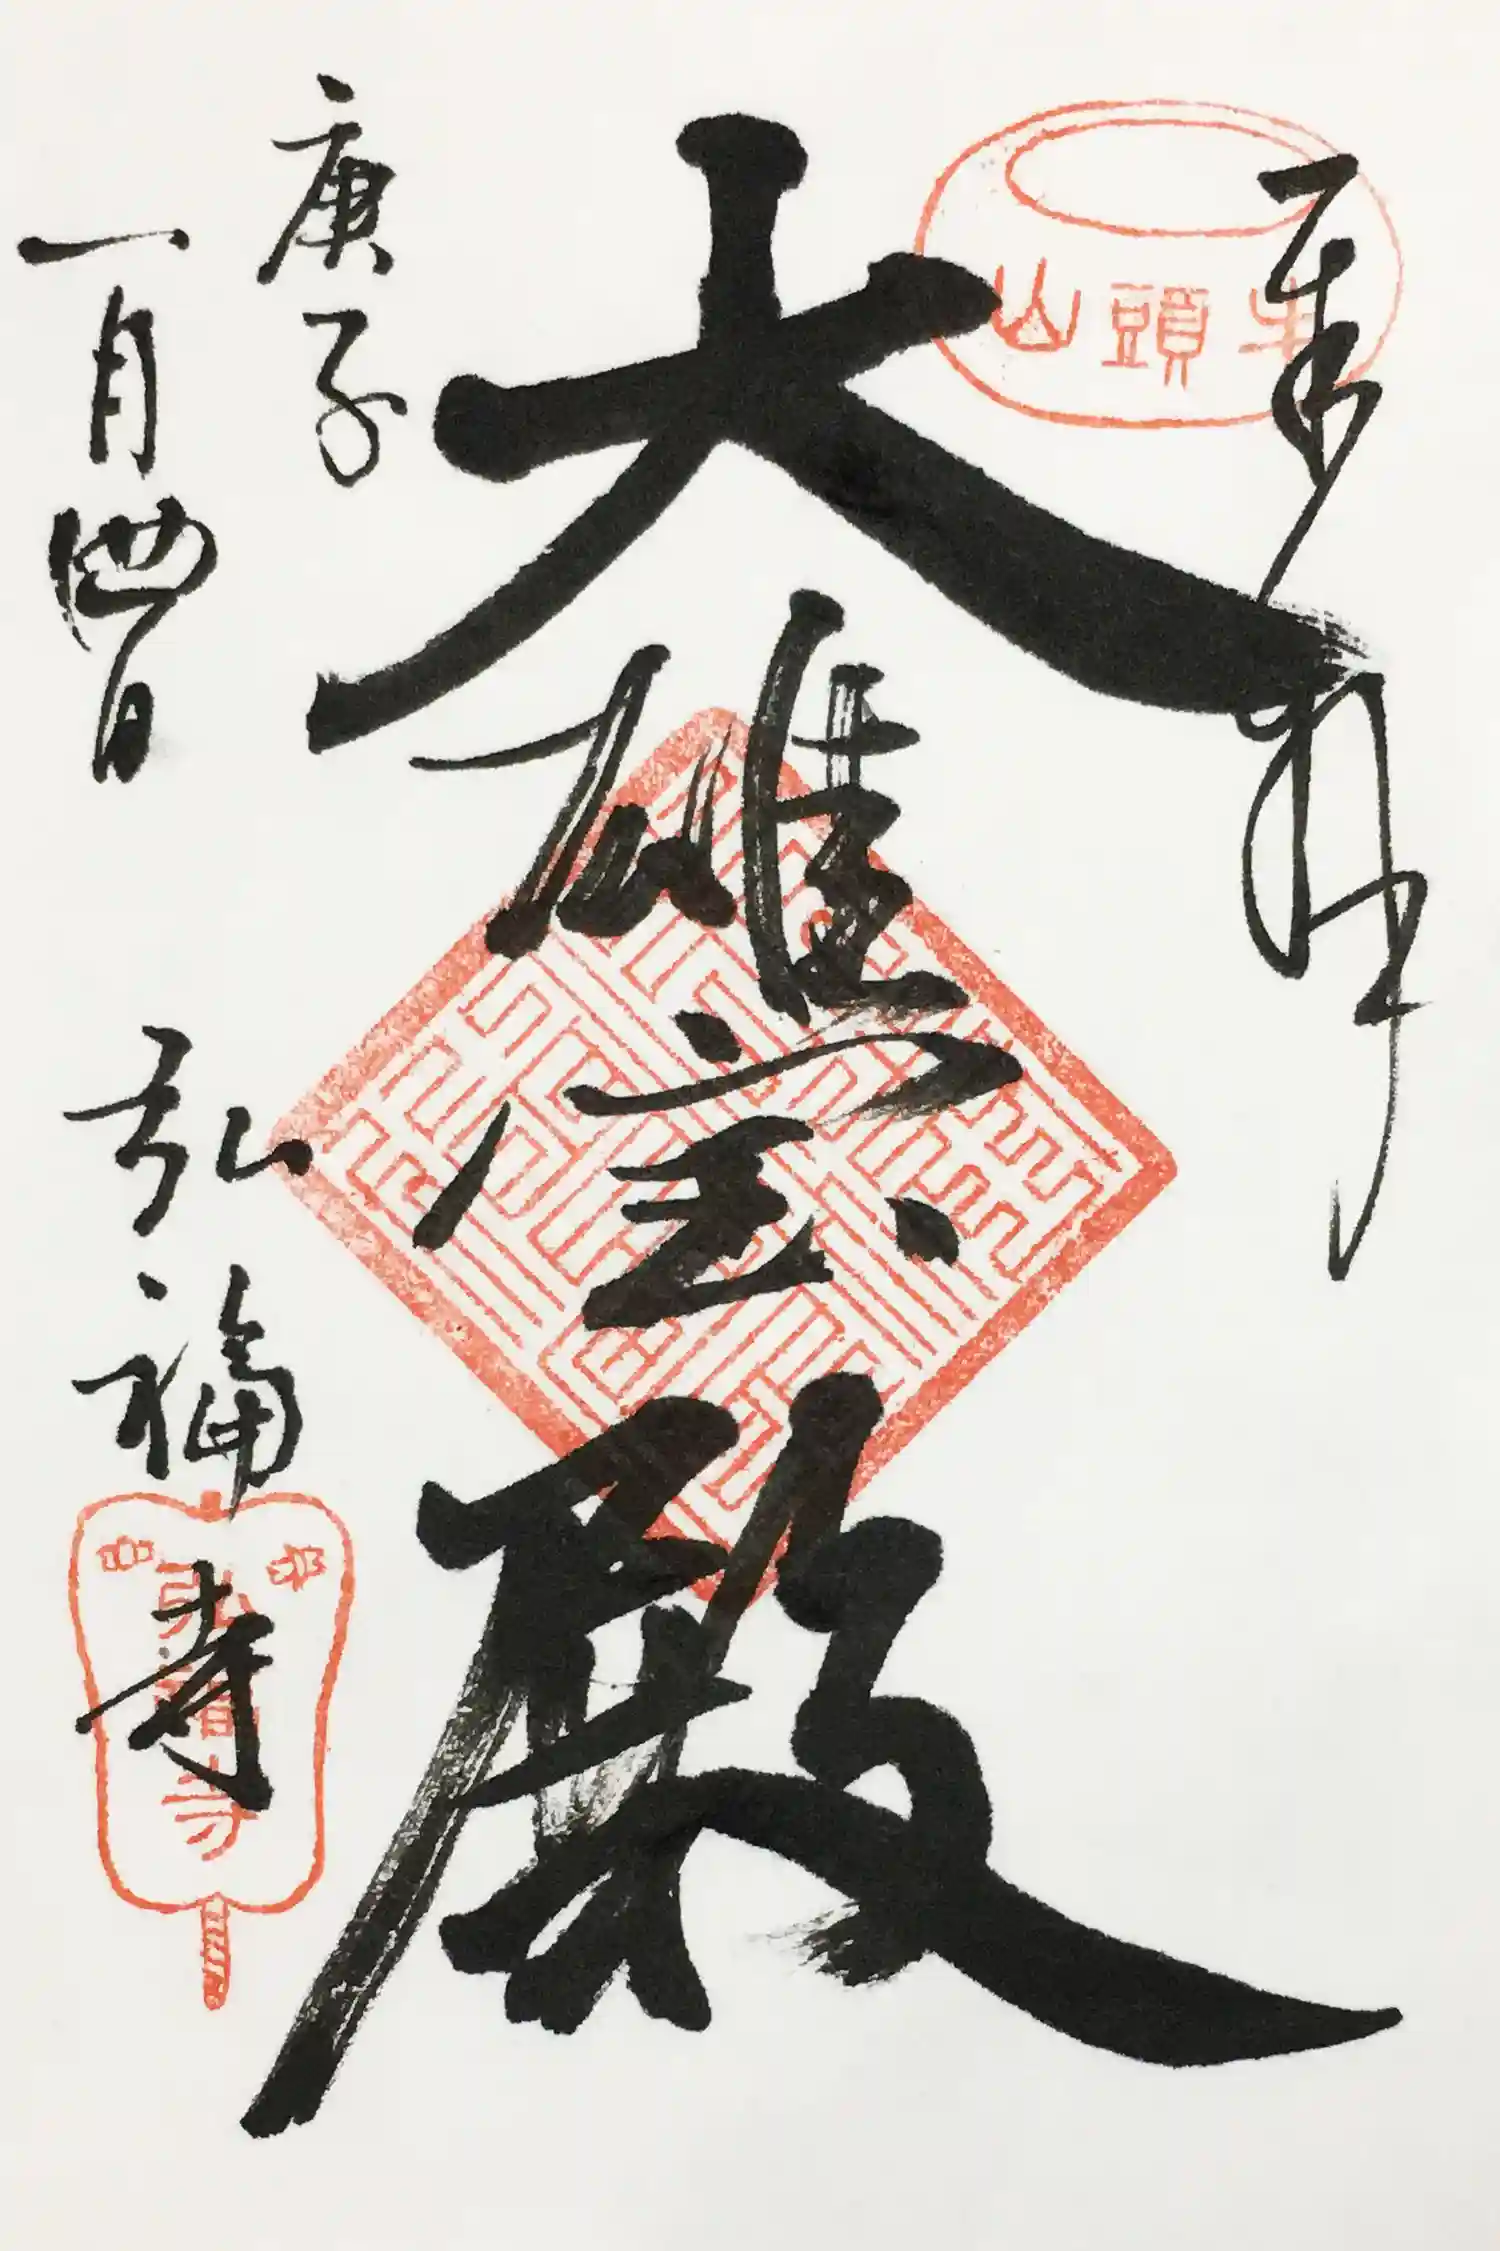 奉拝
牛頭山
大雄宝殿
庚子
一月四日
弘福寺
弘福寺